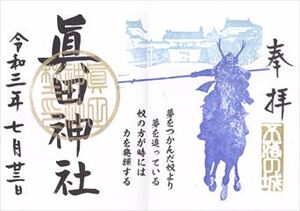 奉拝
不落の城
夢をつかんだ奴より
夢を追っている
奴の方が時には
力を発揮する
眞田神社
令和三年七月廿三日